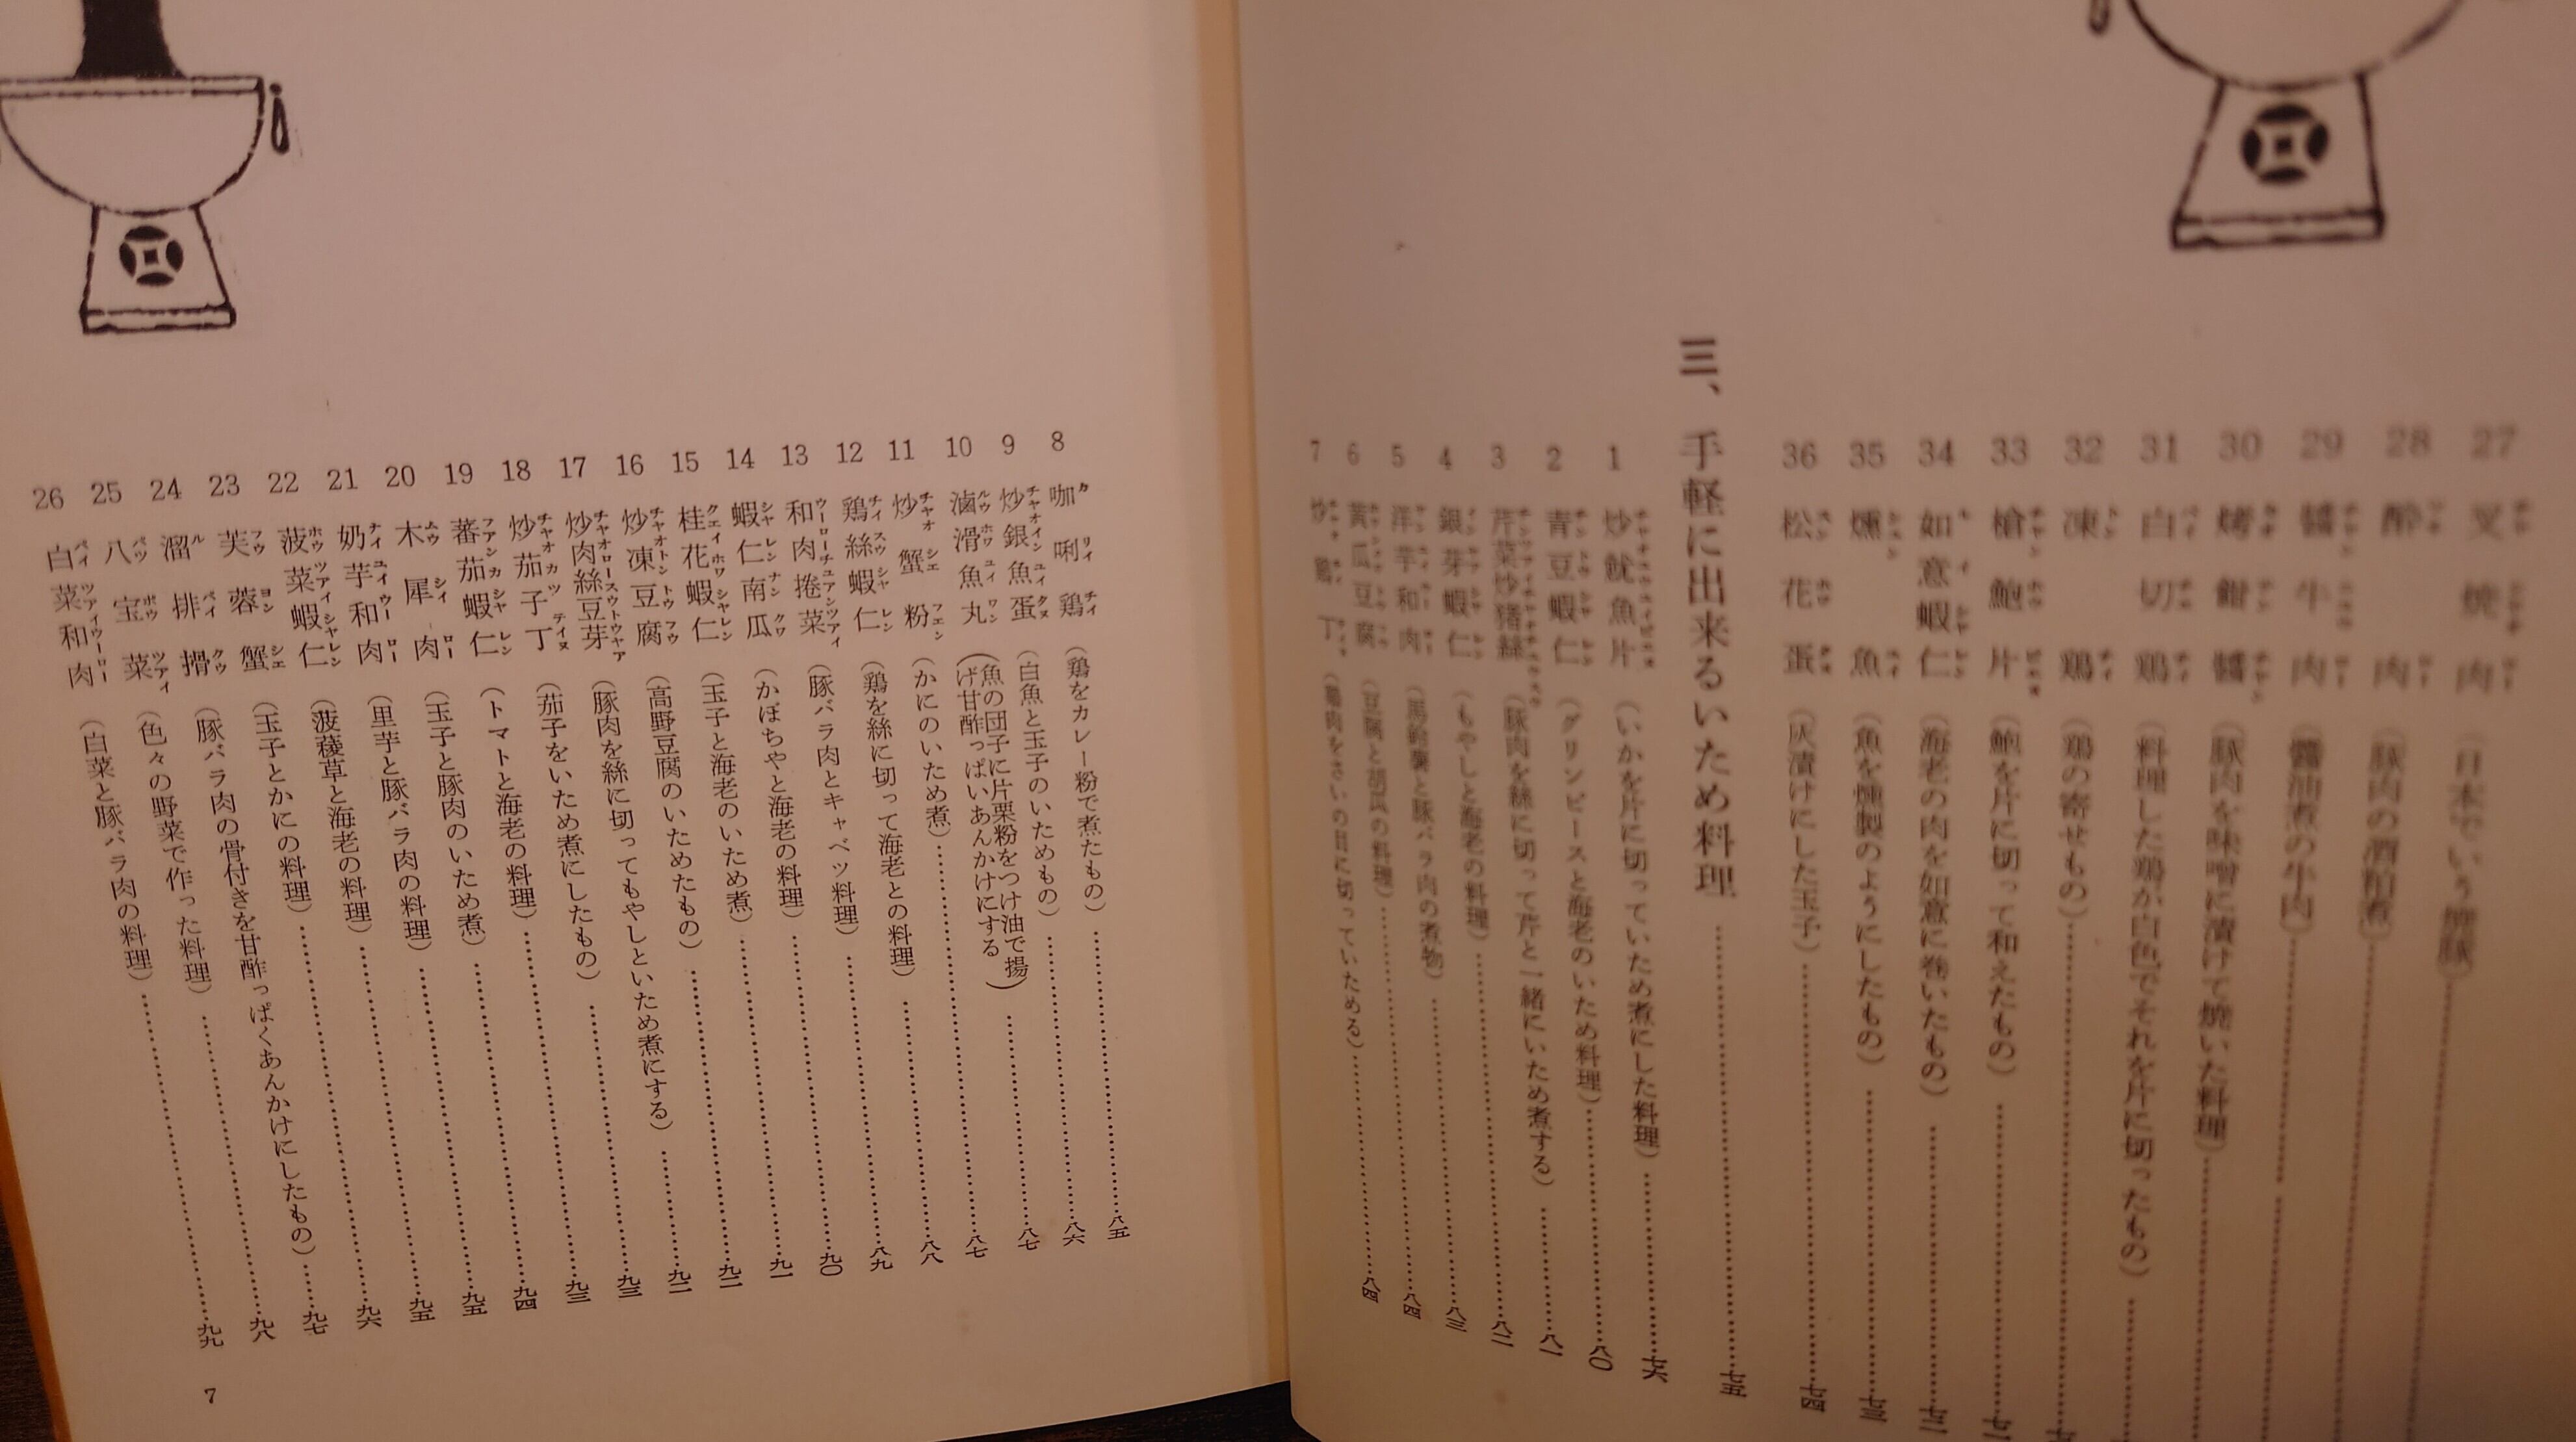 27 叉焼肉（日本でいう焼豚）
28 酔肉（豚肉の酒粕煮）
29 醬牛肉（醬油煮の牛肉）
30 烤鉗醬（豚肉を味噌に漬けて焼いた料理）
31 白切鶏（料理した鶏が白色でそれを片に切ったもの）
32 凍鶏（鶏の寄せもの）
33 槍鮑片（鮑を片に切って和えたもの）
34 如意蝦仁（海老の肉を如意に巻いたもの）……七二
35 燻魚（魚を燻製のようにしたもの）……七三
36 松花蛋（灰漬けにした玉子）……七四
三、手軽に出来るいため料理……七五
1 炒魷魚片（いかを片に切っていため煮にした料理）……七六
2 青豆蝦仁（グリンピースと海老のいため料理）……八〇
3 芹菜炒猪絲（豚肉を絲に切って芹と一緒にいため煮する）……八一
4 銀芽蝦仁（もやしと海老の料理）……八二
5 洋芋和肉（馬鈴薯と豚バラ肉の煮物）……八三
6 黄瓜豆腐（豆腐と胡瓜の料理）……八四
7 炒鶏丁（鶏肉をさいの目に切っていためる）……八四
8 咖唎鶏（鶏をカレー粉で煮たもの）……八五
9 炒銀魚蛋（白魚と玉子のいためもの）……八六
10 滷滑魚丸（魚の団子に片栗粉をつけ油で揚げ甘酢っぱいあんかけにする）……八七
11 炒蟹粉（かにのいため煮）……八七
12 鶏絲蝦仁（鶏を絲に切って海老との料理）……八八
13 和肉捲菜（豚バラ肉とキャベツ料理）……八九
14 蝦仁南瓜（かぼちやと海老の料理）……九〇
15 桂花蝦仁（玉子と海老のいため煮）……九一
16 炒凍豆腐（高野豆腐のいためたもの）……九二
17 炒肉絲豆芽（豚肉を絲に切ってもやしといため煮にする）……九二
18 炒茄子丁（茄子をいため煮にしたもの）……九三
19 蕃茄蝦仁（トマトと海老の料理）……九三
20 木犀肉（玉子と豚肉のいため煮）……九四
21 奶芋和肉（里芋と豚バラ肉の料理）……九五
22 菠菜蝦仁（菠薐草と海老の料理）……九五
23 芙蓉蟹（玉子とかにの料理）……九六
24 溜排搰（豚バラ肉の骨付きを甘酢っぱくあんかけにしたもの）……九七
25 八宝菜（色々の野菜で作った料理）……九八
26 白菜和肉（白菜と豚バラ肉の料理）……九九
7